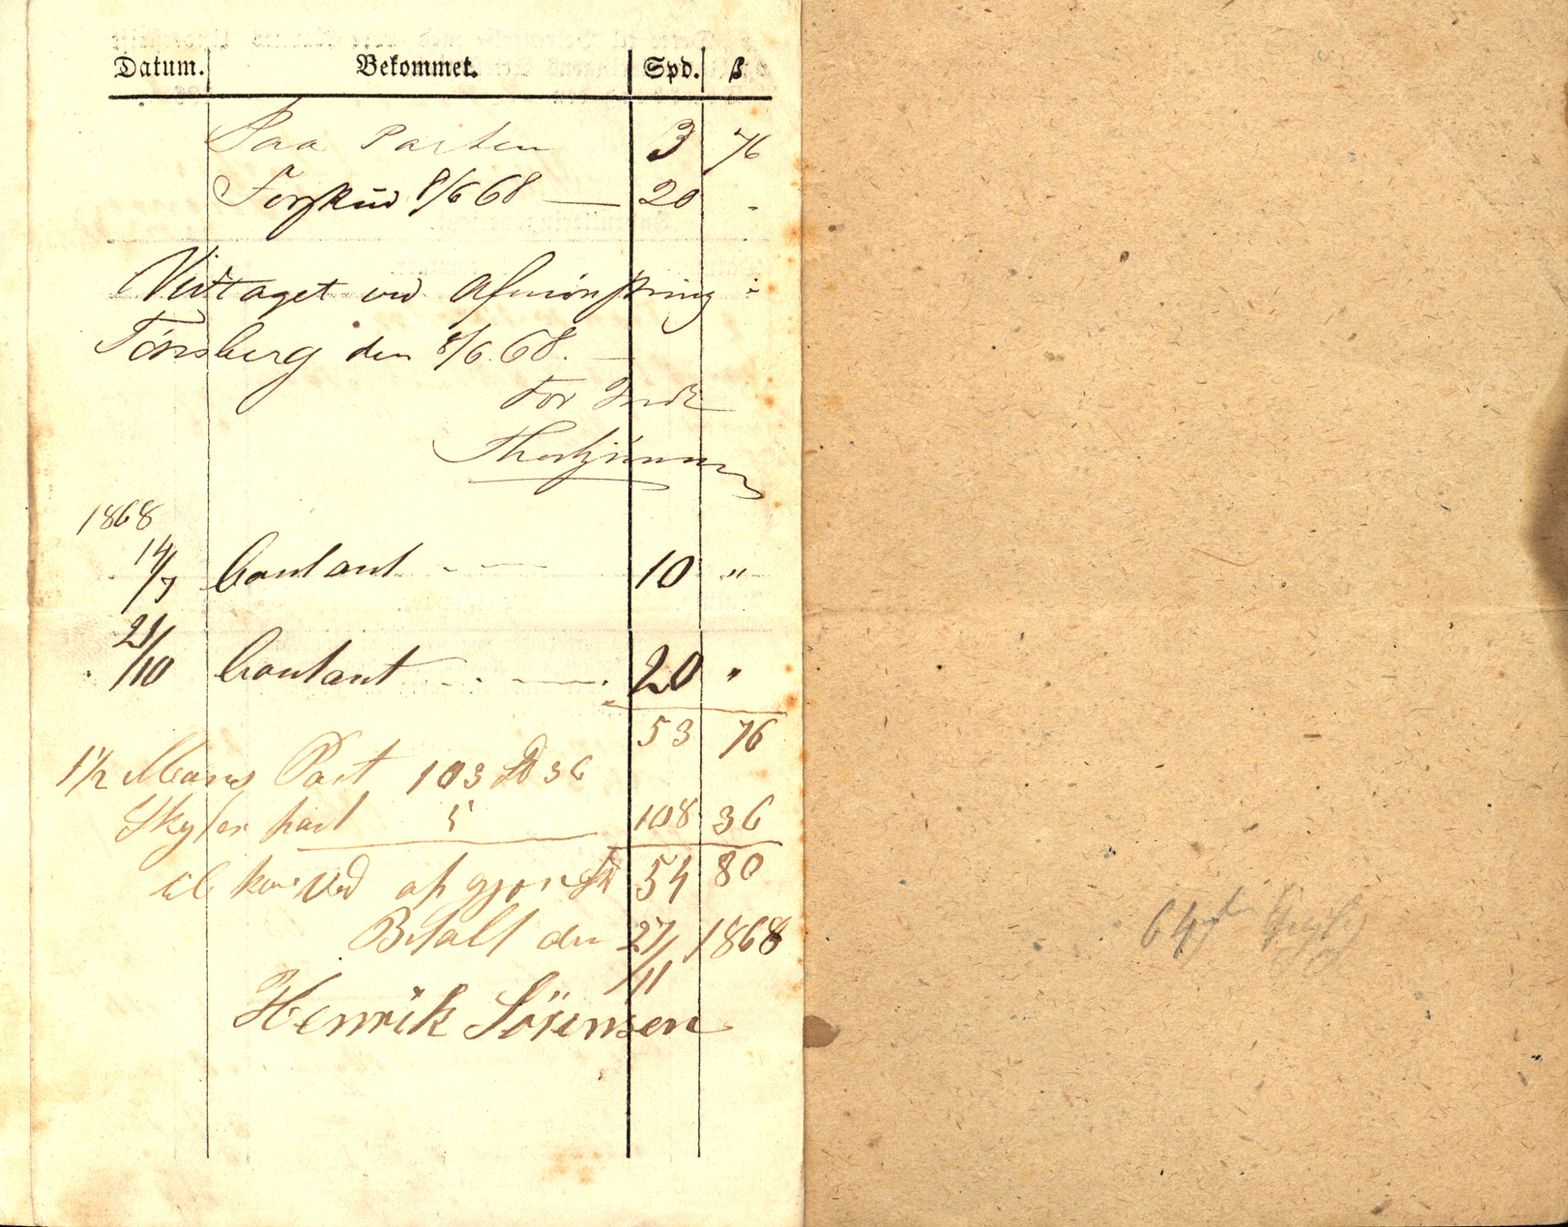 Datum. Bekommet. Spd. ß
Paa Parten 3 76
Forskud 8/6 68 — 20 -
Vedtaget ved Afmönstring i
Tönsberg den 8/6.68.
For
1868
14/7 Contant 10 "
21/10 Contant 20 "
53 76
1½ Mans Part 103 36
Skyter part 5 108 36
54 80
Betalt den 27/11 1868
Henrik Sörensen
64